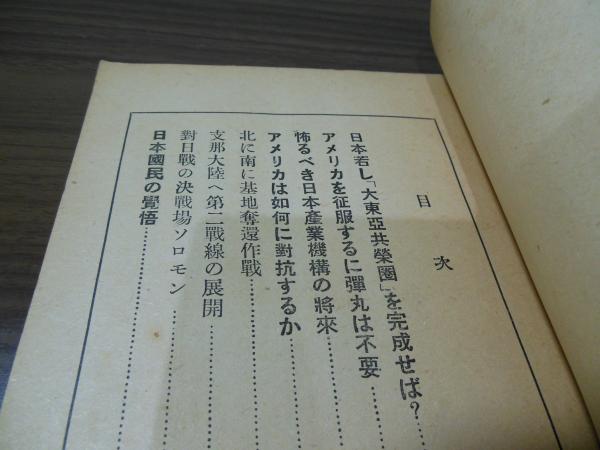 目次
日本若し「大東亞共榮圈」を完成せば?……
アメリカを征服するに彈丸は不要……
怖るべき日本産業機構の將來……
アメリカは如何に對抗するか……
北に南に基地奪還作戰……
支那大陸へ第二戰線の展開……
對日戰の決戰場ソロモン……
日本國民の覺悟……